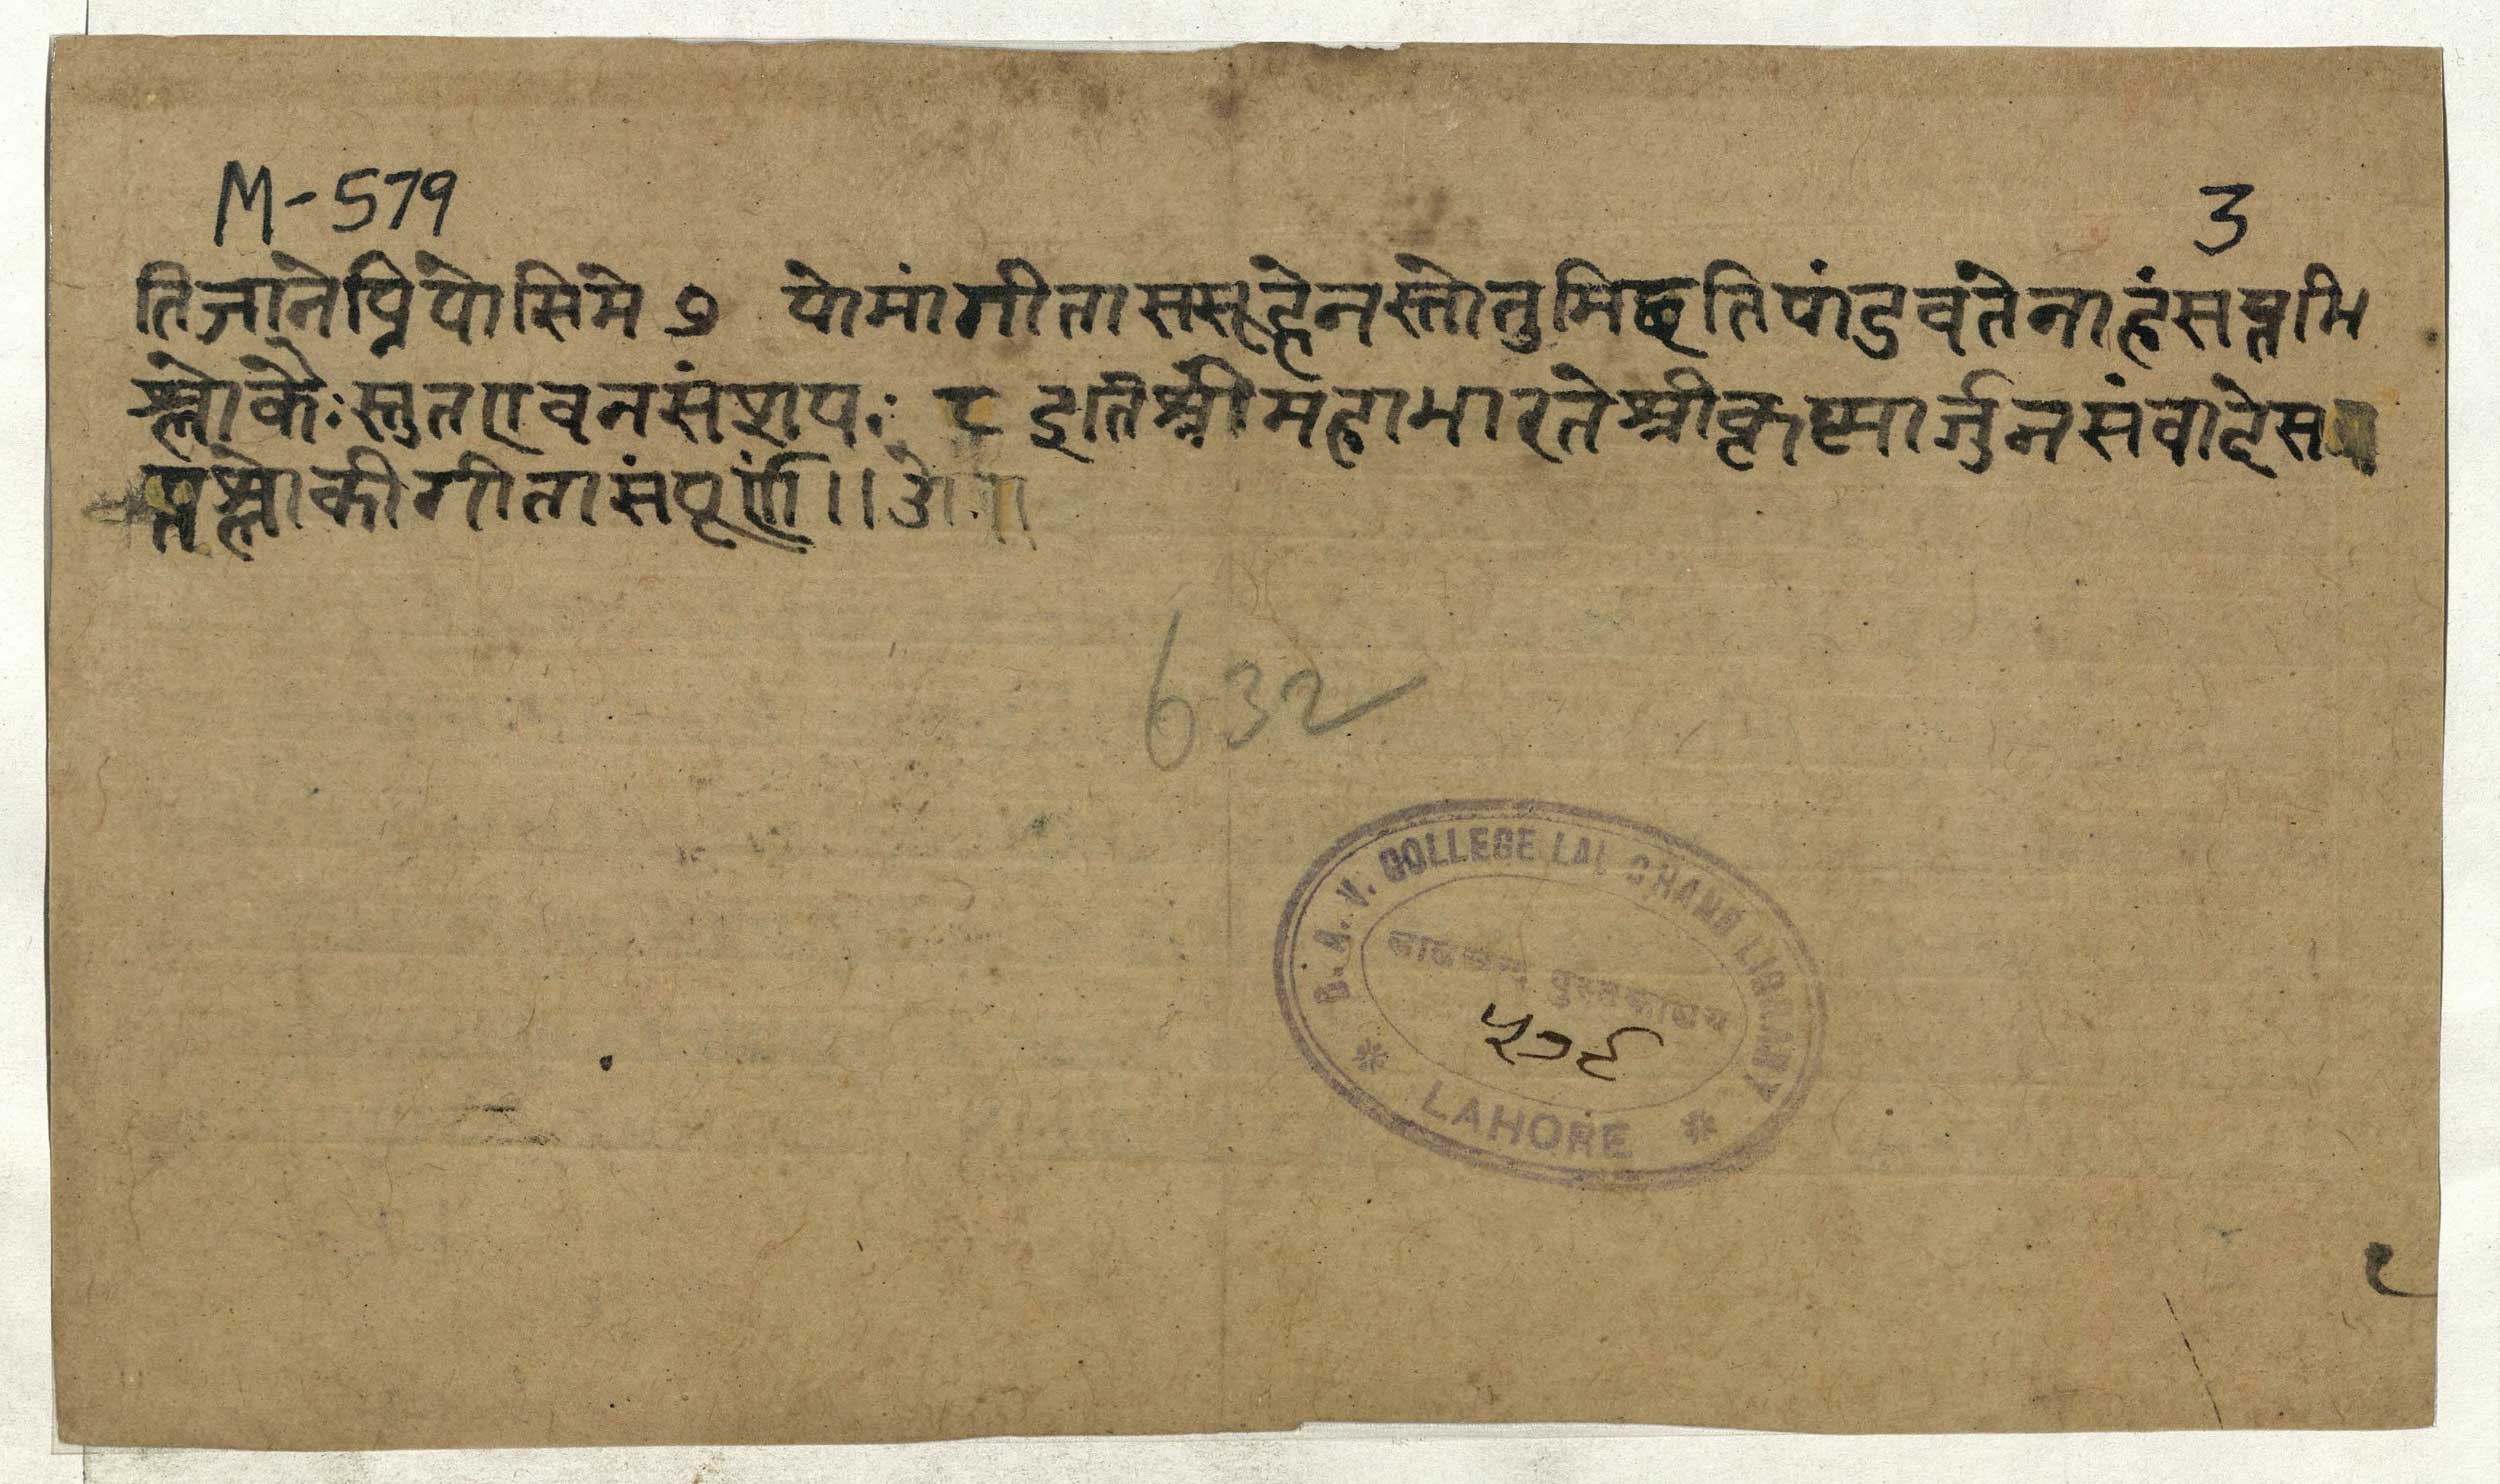 M-579
3
तिजानेप्रियोसिमे ७ योमांगीतासस्रूहेनस्तोतुमिछतिपांडवंतेनाहंसप्तमि
श्लोकैःस्तुतएवनसंशयः ८ इतिश्रीमहाभारतेश्रीकृष्णार्जुनसंवादेस
प्तश्लोकीगीतासंपूर्णं ।।
632
D.A.V. COLLEGE LAL CHAND LIBRARY
लालचन्द पुस्तकालय
५७९
* LAHORE *